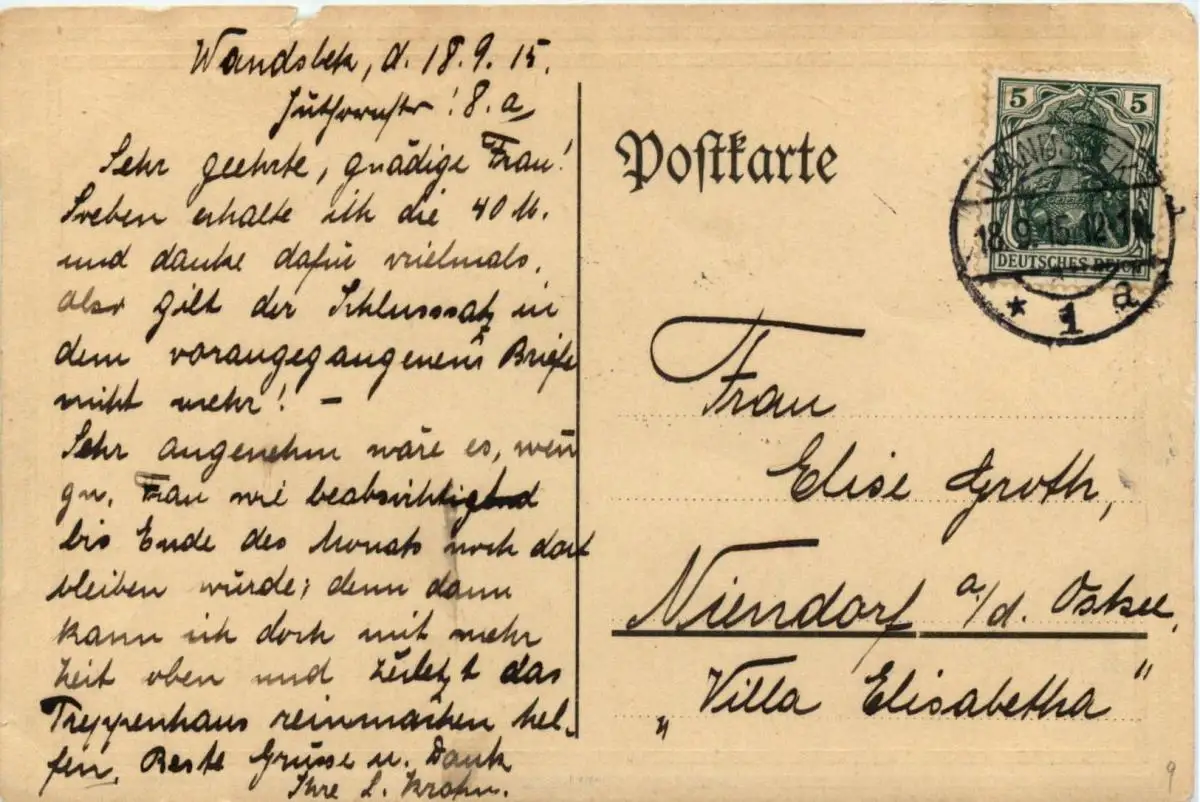 Wandsbek, d. 18.9.15.
8.a
Sehr geehrte, gnädige Frau!
Soeben erhalte ich die 40 M.
und danke dafür vielmals.
Also gilt der Schlusssatz in
dem vorangegangenen Briefe
nicht mehr! –
Sehr angenehm wäre es, wenn
gn. Frau wie beabsichtigt
bis Ende des Monats noch dort
bleiben würde; denn dann
kann ich doch mit mehr
Zeit oben und zuletzt das
Treppenhaus reinmachen hel-
fen. Beste Grüsse u. Dank
Ihre L. Krohn.
Postkarte
5 5
WANDSBEK
18.9.15.12-1N.
DEUTSCHES REICH
* 1 a
Frau
Elise Groth,
Niendorf a/d. Ostsee,
„Villa Elisabetha"
9